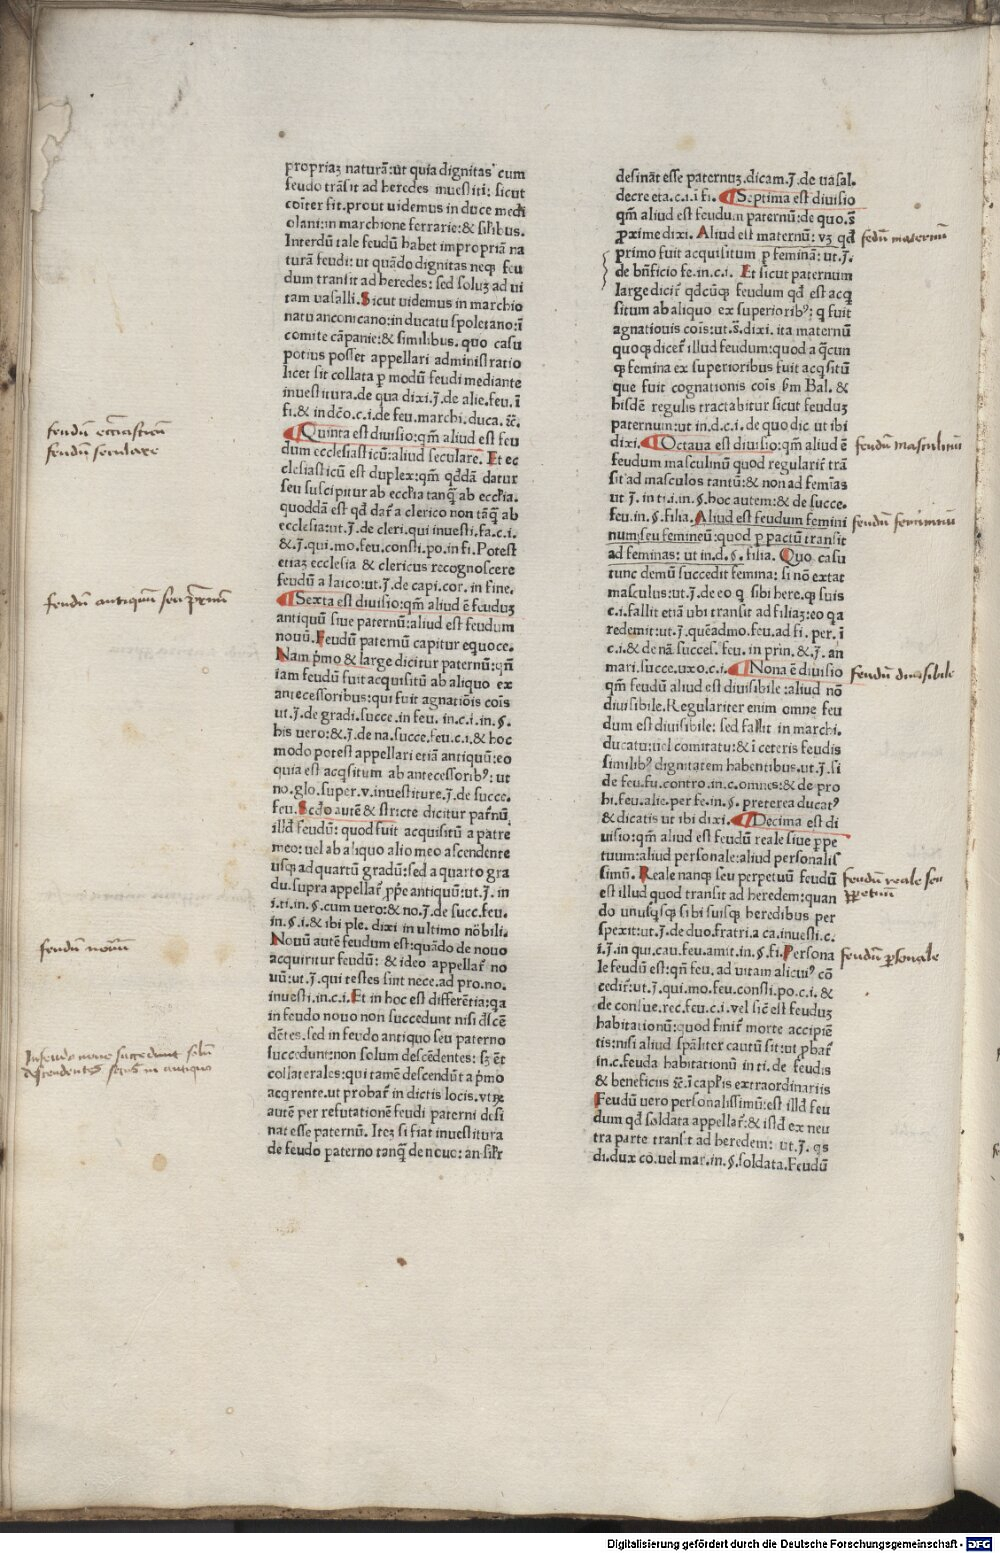 propriaꝫ naturã:ut quia dignitas cum
feudo trãsit ad heredes inuestiti: sicut
coĩter fit.prout uidemus in duce medi
olani:in marchione ferrarie:& silibus.
Interdũ tale feudũ habet impropriã na
turã feudi: ut quãdo dignitas neqꝫ feu
dum transit ad heredes: sed soluꝫ ad ui
tam uasalli. Sicut uidemus in marchio
natu anconicano:in ducatu spoletano:ĩ
comite cãpanie:& similibus. quo casu
potius posset appellari administratio
licet sit collata ꝑ modũ feudi mediante
inuestitura.de qua dixi.J.de alie.feu.ĩ
fi.& in dẽo.c.i.de feu.marchi.duca.&c̃.
¶Quinta est diuisio:qm̃ aliud est feu
dum ecclesiasticũ:aliud seculare. Et ec
clesiasticũ est duplex:qm̃ qddã datur
seu suscipitur ab eccl̃ia tanq̃ ab eccl̃ia.
quoddã est qd̃ dat̃ a clerico non tãq̃ ab
ecclesia:ut.J.de cleri.qui inuesti.fa.c.i.
&.J.qui.mo.feu.consti.po.in fi. Potest
etiaꝫ ecclesia & clericus recognoscere
feudũ a laico:ut.J.de capi.cor.in fine.
¶Sexta est diuisio:qm̃ aliud ẽ feuduꝫ
antiquũ siue paternũ:aliud est feudum
nouũ. Feudũ paternũ capitur equoce.
Nam p̃mo & large dicitur paternũ:qñ
iam feudũ fuit acquisitũ ab aliquo ex
antecessoribus:qui fuit agnatiõis cõis
ut.J.de gradi.succe.in feu. in.c.i.in.§.
his uero:&.J.de na.succe.feu.c.i.& hoc
modo potest appellari etiã antiquũ:eo
quia est acq̃situm ab antecessoribꝰ: ut
no.glo.super.v.inuestiture.J.de succe.
feu. Scd̃o autẽ & stricte dicitur pat̃nũ
illd̃ feudũ: quod fuit acquisitũ a patre
meo: uel ab aliquo alio meo ascendente
usqꝫ ad quartũ gradũ:sed a quarto gra
du.supra appellat̃ ꝓp̃e antiquũ:ut.J. in
i.ti.in.§.cum uero:& no.J.de succ.feu.
in.§.i.& ibi ple. dixi in ultimo nõbili.
Nouũ autẽ feudum est:quãdo de nouo
acquiritur feudũ: & ideo appellat̃ no
uũ:ut.J.qui testes sint nece.ad pro.no.
inuesti.in.c.i. Et in hoc est differẽtia:qa
in feudo nouo non succedunt nisi dscẽ
dẽtes.sed in feudo antiquo seu paterno
succedunt:non solum descẽdentes: sꝫ ẽt
collaterales:qui tamẽ descendũt a p̃mo
acq̃rente.ut probat̃ in dictis locis.utꝝ
autẽ per refutationẽ feudi paterni desi
nat esse paternũ. Iteꝫ si fiat inuestitura
de feudo paterno tanq̃ de nouo: an silr̃
desinãt esse paternuꝫ.dicam.J.de uasal.
decre eta.c.i.ĩ fi. ¶Septima est diuisio
qm̃ aliud est feudum paternũ:de quo.S̃
ꝓxime dixi. Aliud est maternũ: vꝫ qd̃
primo fuit acquisitum ꝑ feminã: ut.J.
de bñficio fe.in.c.i. Et sicut paternum
large dicit̃ qdcũqꝫ feudum qd̃ est acq̃
situm ab aliquo ex superioribꝰ: q fuit
agnationis cõis:ut.S̃.dixi. ita maternũ
quoqꝫ dicet̃ illud feudum:quod a q̃cun
qꝫ femina ex superioribus fuit acq̃sitũ
que fuit cognationis cõis ẞm Bal. &
hisdẽ regulis tractabitur sicut feuduꝫ
paternum:ut in.d.c.i. de quo dic ut ibi
dixi. ¶Octaua est diuisio:qm̃ aliud ẽ
feudum masculinũ quod regularit̃ trã
sit ad masculos tantũ:& non ad femĩas
ut J. in ti.i.in.§.hoc autem:& de succe.
feu.in.§.filia. Aliud est feudum femini
num seu femineũ:quod ꝑ pactũ transit
ad feminas: ut in.d.§.filia. Quo casu
tunc demũ succedit femina: si nõ extat
masculus:ut.J.de eo q sibi here.qꝫ suis
c.i.fallit etiã ubi transit ad filiaꝫ:eo qa
redemit:ut.J.quẽadmo.feu.ad fi. per.ĩ
c.i.& de nã succes.feu.in prin.&.J.an
mari.succe.uxo.c.i. ¶Nona ẽ diuisio
qm̃ feudũ aliud est diuisibile:aliud nõ
diuisibile.Regulariter enim omne feu
dum est diuisibile: sed fallit in marchi.
ducatu:uel comitatu:& ĩ ceteris feudis
similibꝰ dignitatem habentibus.ut.J.si
de feu.fu.contro.in.c.omnes:& de pro
hi.feu.alie.per fe.in.§.preterea ducatꝰ
& dicatis ut ibi dixi. ¶Decima est di
uisio:qm̃ aliud est feudũ reale siue ꝑpe
tuum:aliud personale:aliud personalis
simũ. Reale nanqꝫ seu perpetuũ feudũ
est illud quod transit ad heredem:quan
do unusq̃sqꝫ sibi suisqꝫ heredibus per
spexit:ut.J.de duo.fratri.a ca.inuesti.c.
i.J.in qui.cau.feu.amit.in.§.fi. Persona
le feudũ est:qñ feu.ad uitam alicuiꝰ cõ
cedit̃:ut.J.qui.mo.feu.consti.po.c.i. &
de consue.rec.feu.c.i.vel siẽ est feuduꝫ
habitationũ:quod finit̃ morte accipiẽ
tis:nisi aliud sp̃aliter cautũ sit:ut ꝓbat̃
in.c.feuda habitationũ in ti.de feudis
& beneficiis &c̃.ĩ cap̃lis extraordinariis
Feudũ uero personalissimũ:est illd̃ feu
dum qd̃ soldata appellat̃:& istd̃ ex neu
tra parte transit ad heredem: ut.J. qs
di.dux co.uel mar.in.§.soldata.Feudũ
feudũ eccl̃iasticũ
feudũ seculare
feudũ antiquũ seu p̃rnũ
feudũ nouũ
In feudo nouo succedunt solũ
descendentes secus in antiquo
fedũ maternũ
feudũ masculinũ
feudũ femininũ
feudũ diuisibile
feudũ reale seu
ꝑpetuũ
feudũ ꝑsonale
Digitalisierung gefördert durch die Deutsche Forschungsgemeinschaft - DFG